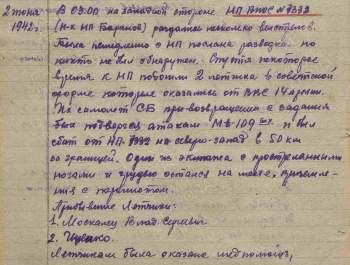 2 июня
1942 г.
В 03.00 на западной стороне НП ВНОС №9332
(н-к НП Баранов) раздались несколько выстрелов.
Была немедленно с НП послана разведка но
никто не был обнаружен. Спустя некоторое
время к НП подошли 2 летчика в советской
форме которые оказались от ВВС 14 армии.
Их самолет СБ при возвращении с задания
был подвергся атакам М-109 и был
сбит от НП-9332 на северо-запад в 50 км
за границей. Один из экипажа с простреленными
ногами и грудью остался на месте, приземле-
ния с парашютом.
Прибывшие Летчики:
1. Москалец Влад. Сергеев
2. Ищенко.
Летчикам была оказана медпомощь,